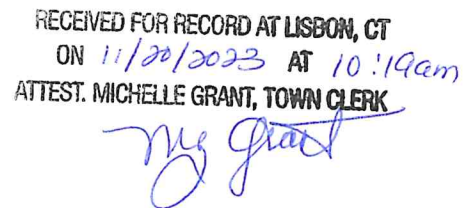 RECEIVED FOR RECORD AT LISBON, CT
ON 11/20/2023 AT 10:19am
ATTEST. MICHELLE GRANT, TOWN CLERK
Grant